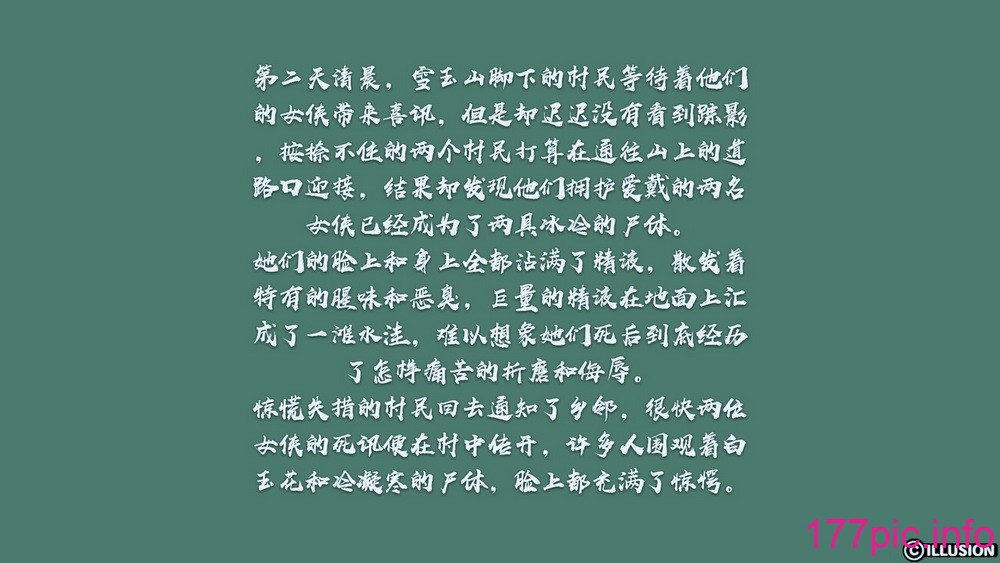 第二天清晨，雪玉山脚下的村民等待着他们
的女侠带来喜讯，但是却迟迟没有看到踪影
，按捺不住的两个村民打算在通往山上的道
路口迎接，结果却发现他们拥护爱戴的两名
女侠已经成为了两具冰冷的尸体。
她们的脸上和身上全都沾满了精液，散发着
特有的腥味和恶臭，巨量的精液在地面上汇
成了一滩水洼，难以想象她们死后到底经历
了怎样痛苦的折磨和侮辱。
惊慌失措的村民回去通知了乡邻，很快两位
女侠的死讯便在村中传开，许多人围观着白
玉花和冷凝寒的尸体，脸上都充满了惊愕。
177pic.info
©ILLUSION